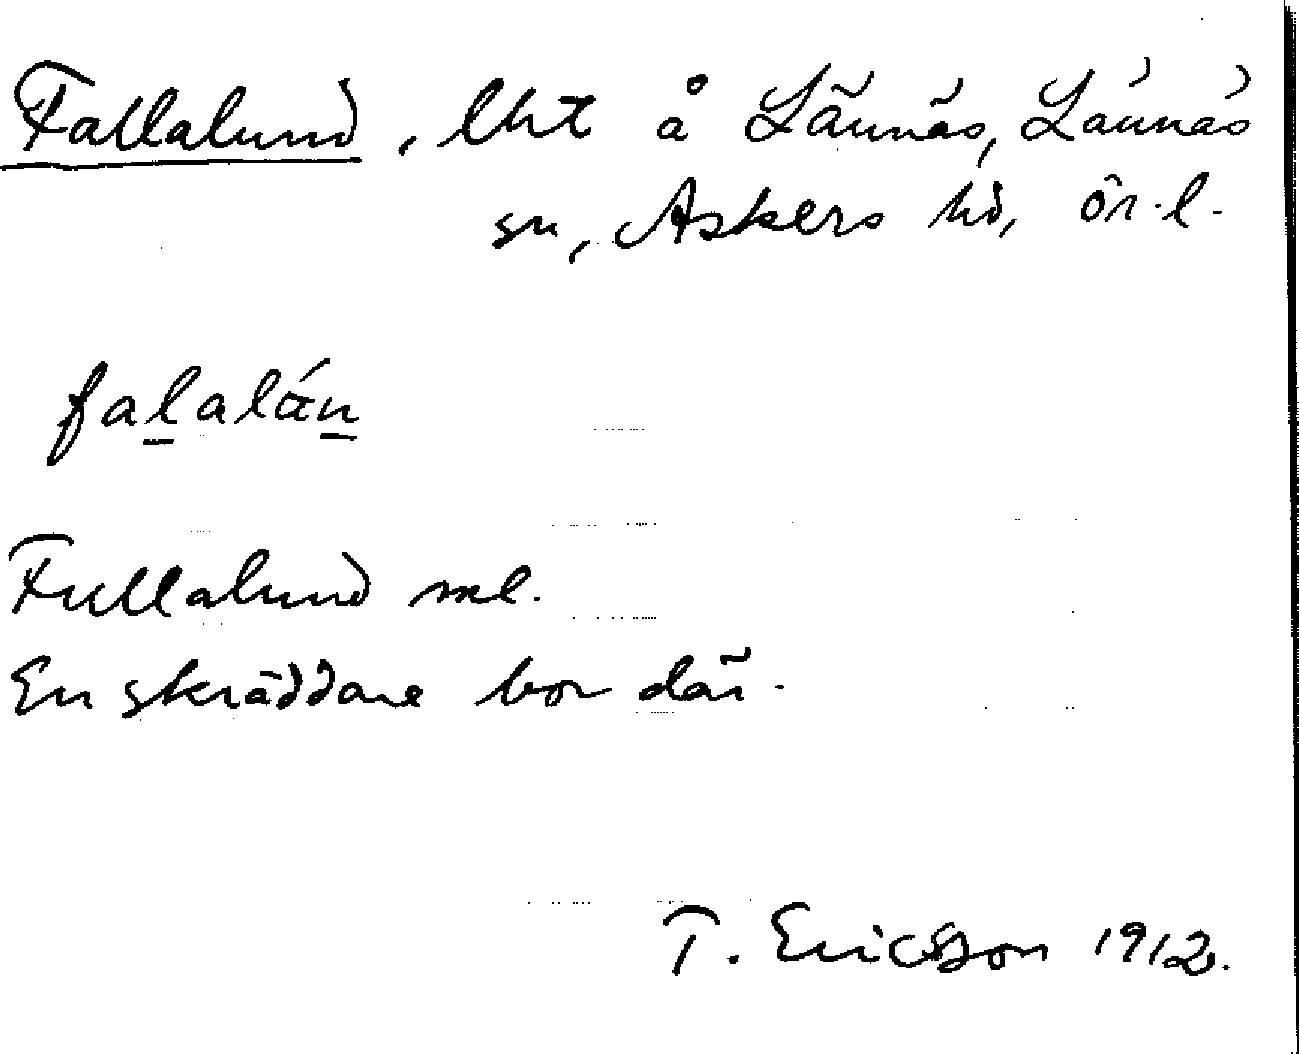 Fallalund, lht å Lännäs, Lännäs
sn, Askers hd, Ör. l.
fa̲lalán̲
Fullalund ml.
En skräddare bor där.
T. Ericsson 1912.